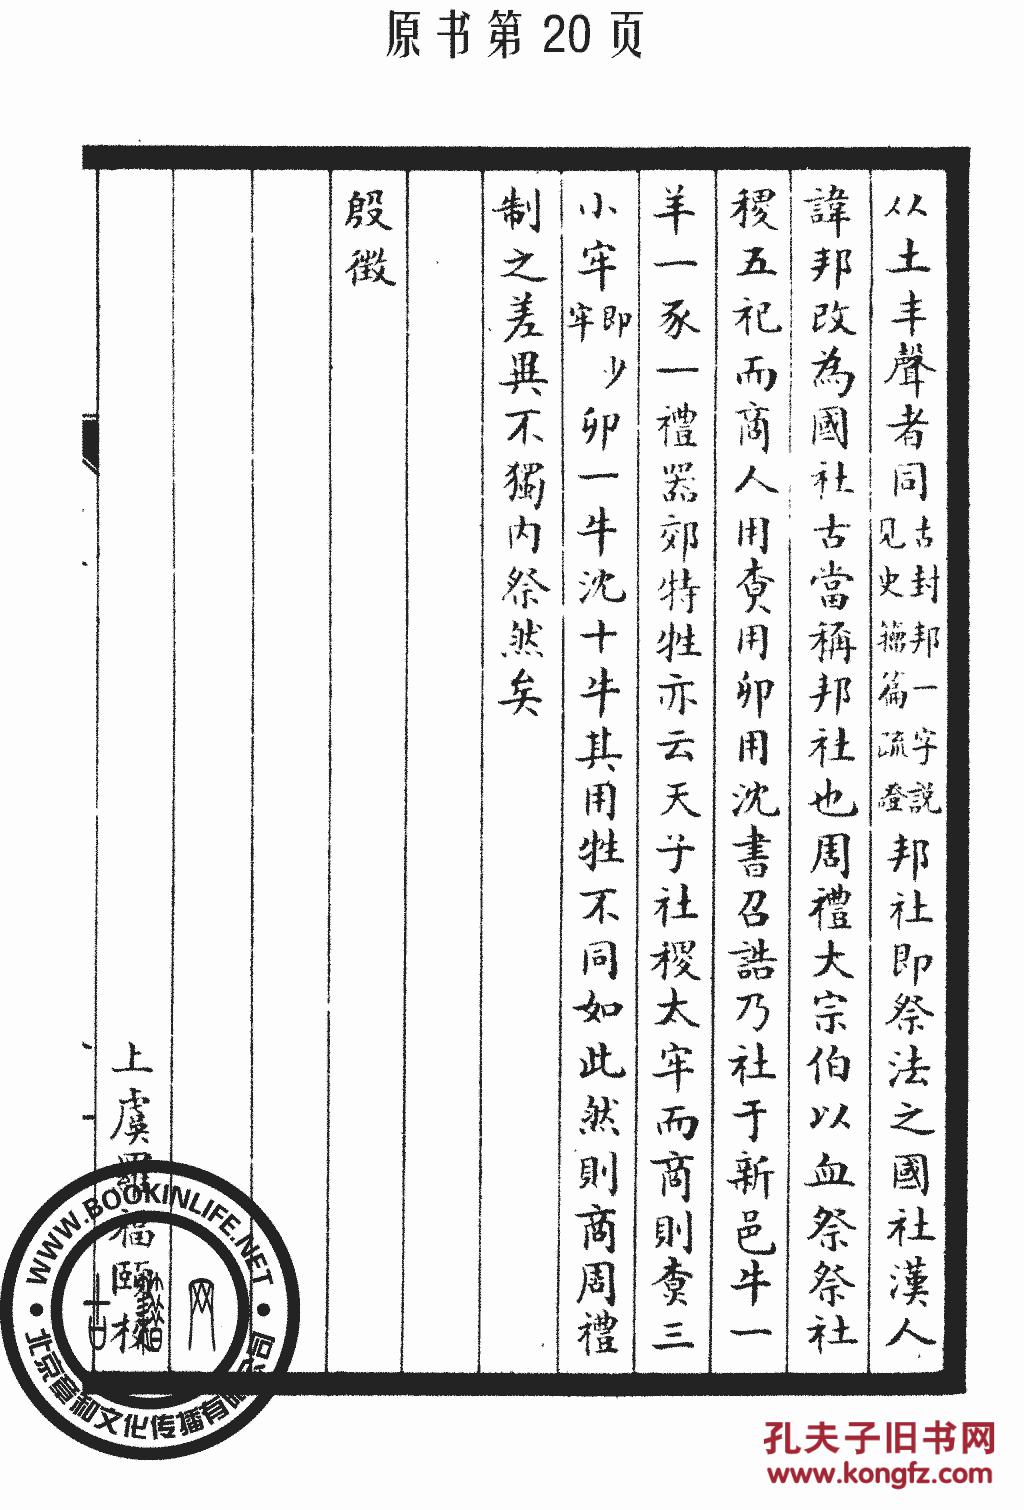 原书第20页
从土丰聲者同古封邦一字說見史籀篇疏證邦社即祭法之國社漢人
諱邦改為國社古當稱邦社也周禮大宗伯以血祭祭社
稷五祀而商人用賣用卯用沈書召誥乃社于新邑牛一
羊一豕一禮器郊特牲亦云天子社稷太牢而商則賣三
小牢即少牢卯一牛沈十牛其用牲不同如此然則商周禮
制之差異不獨內祭然矣
殷徵
上虞羅福頤校
WWW.BOOKINLIFE.NET
北京章和文化传播有限公司
孔夫子旧书网
www.kongfz.com